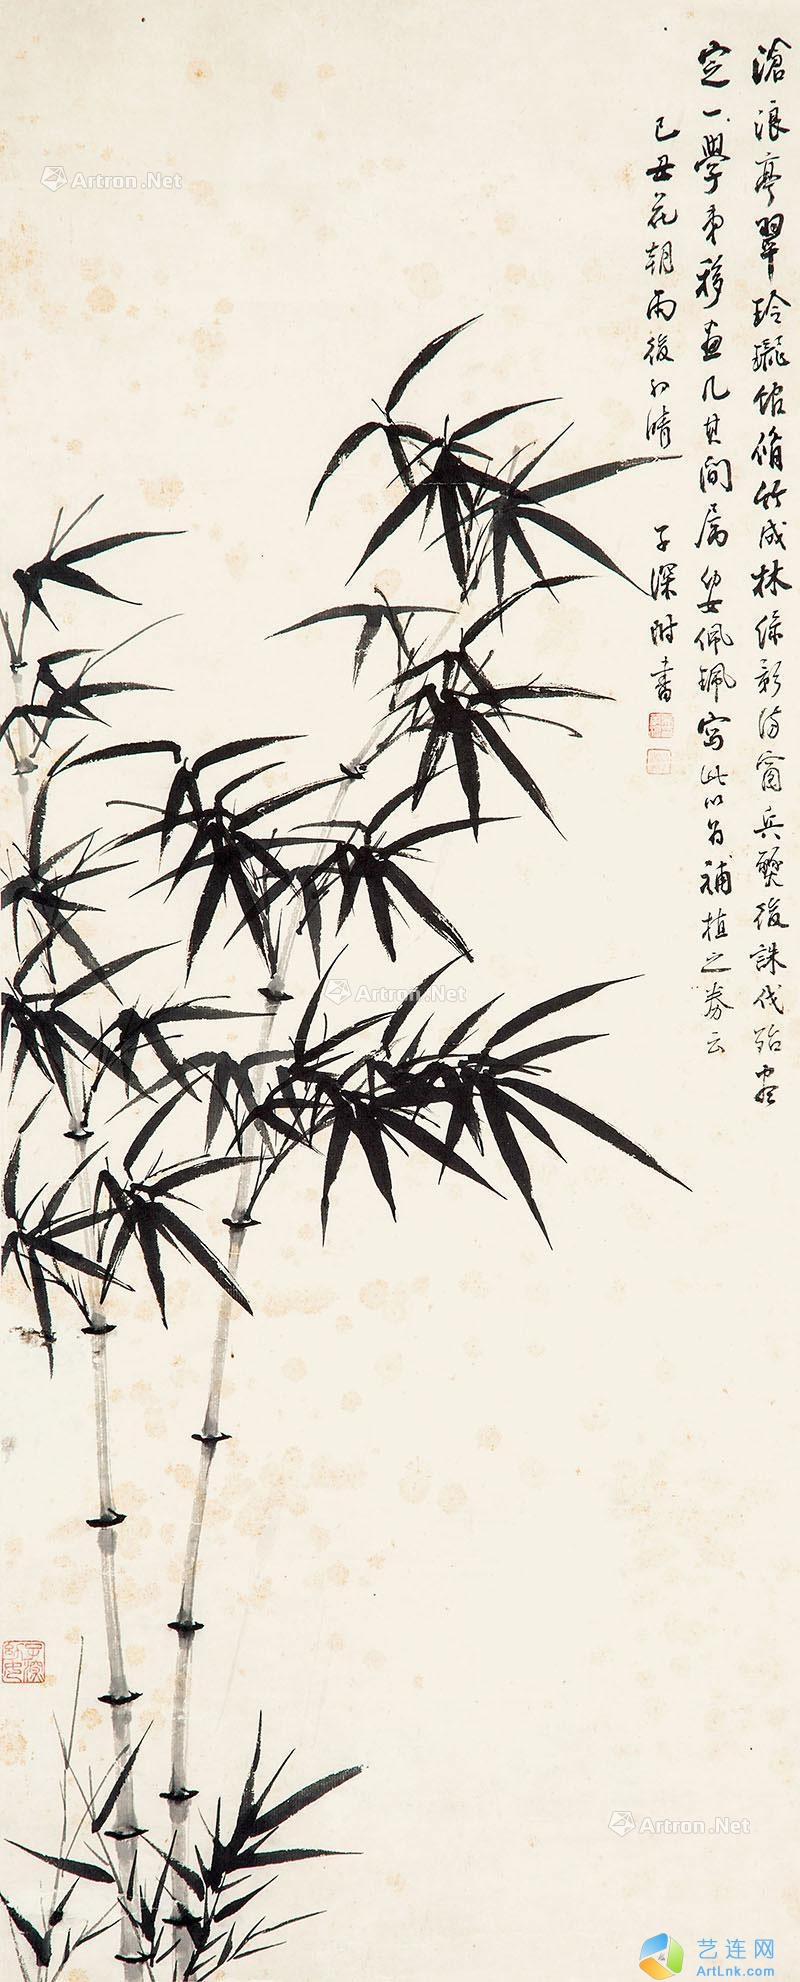 滄浪亭翠玲瓏館脩竹成林綠影滿窗兵燹後誅伐殆盡
定一學弟移畫几其間屬幼女佩珮寫此以為補植之券云
己丑花朝雨後初晴 子深附書
Artron.Net
Artron.Net
Artron.Net
艺连网
ArtLnk.com